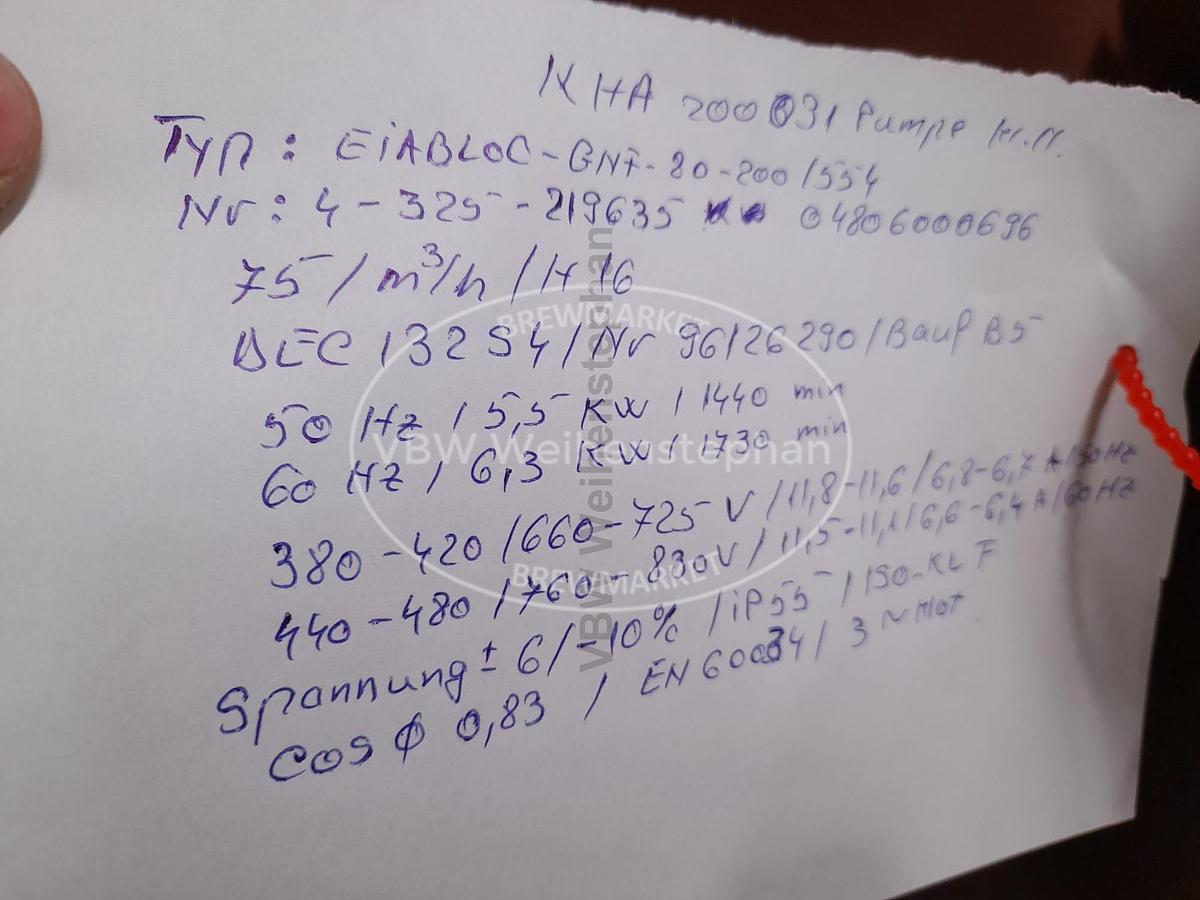 KHA 200031 Pumpe
Typ: EiABLOC-GNF-80-200/554
Nr: 4-325-219635 04806000696
75/m³/h/H 16
DEC 132 S4/Nr 96126290/Bauf B5
50 Hz / 5,5 KW / 1440 min
60 HZ / 6,3 KW / 1730 min
380-420/660-725 V/11,8-11,6/6,8-6,7 A/50Hz
440-480/760-830V/11,5-11,1/6,6-6,4 A/60Hz
Spannung ± 6/-10% / iP55 / ISO-KL F
COS ϕ 0,83 / EN 60034 / 3 ~ Mot.
BREWMARKET
VBW Weihenstephan
BREWMARKET
VBW Weihenstephan